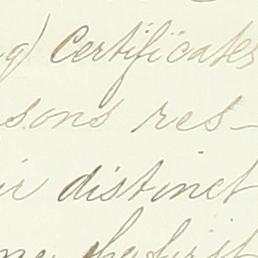 g) Certificates
sons res-
ir distinct